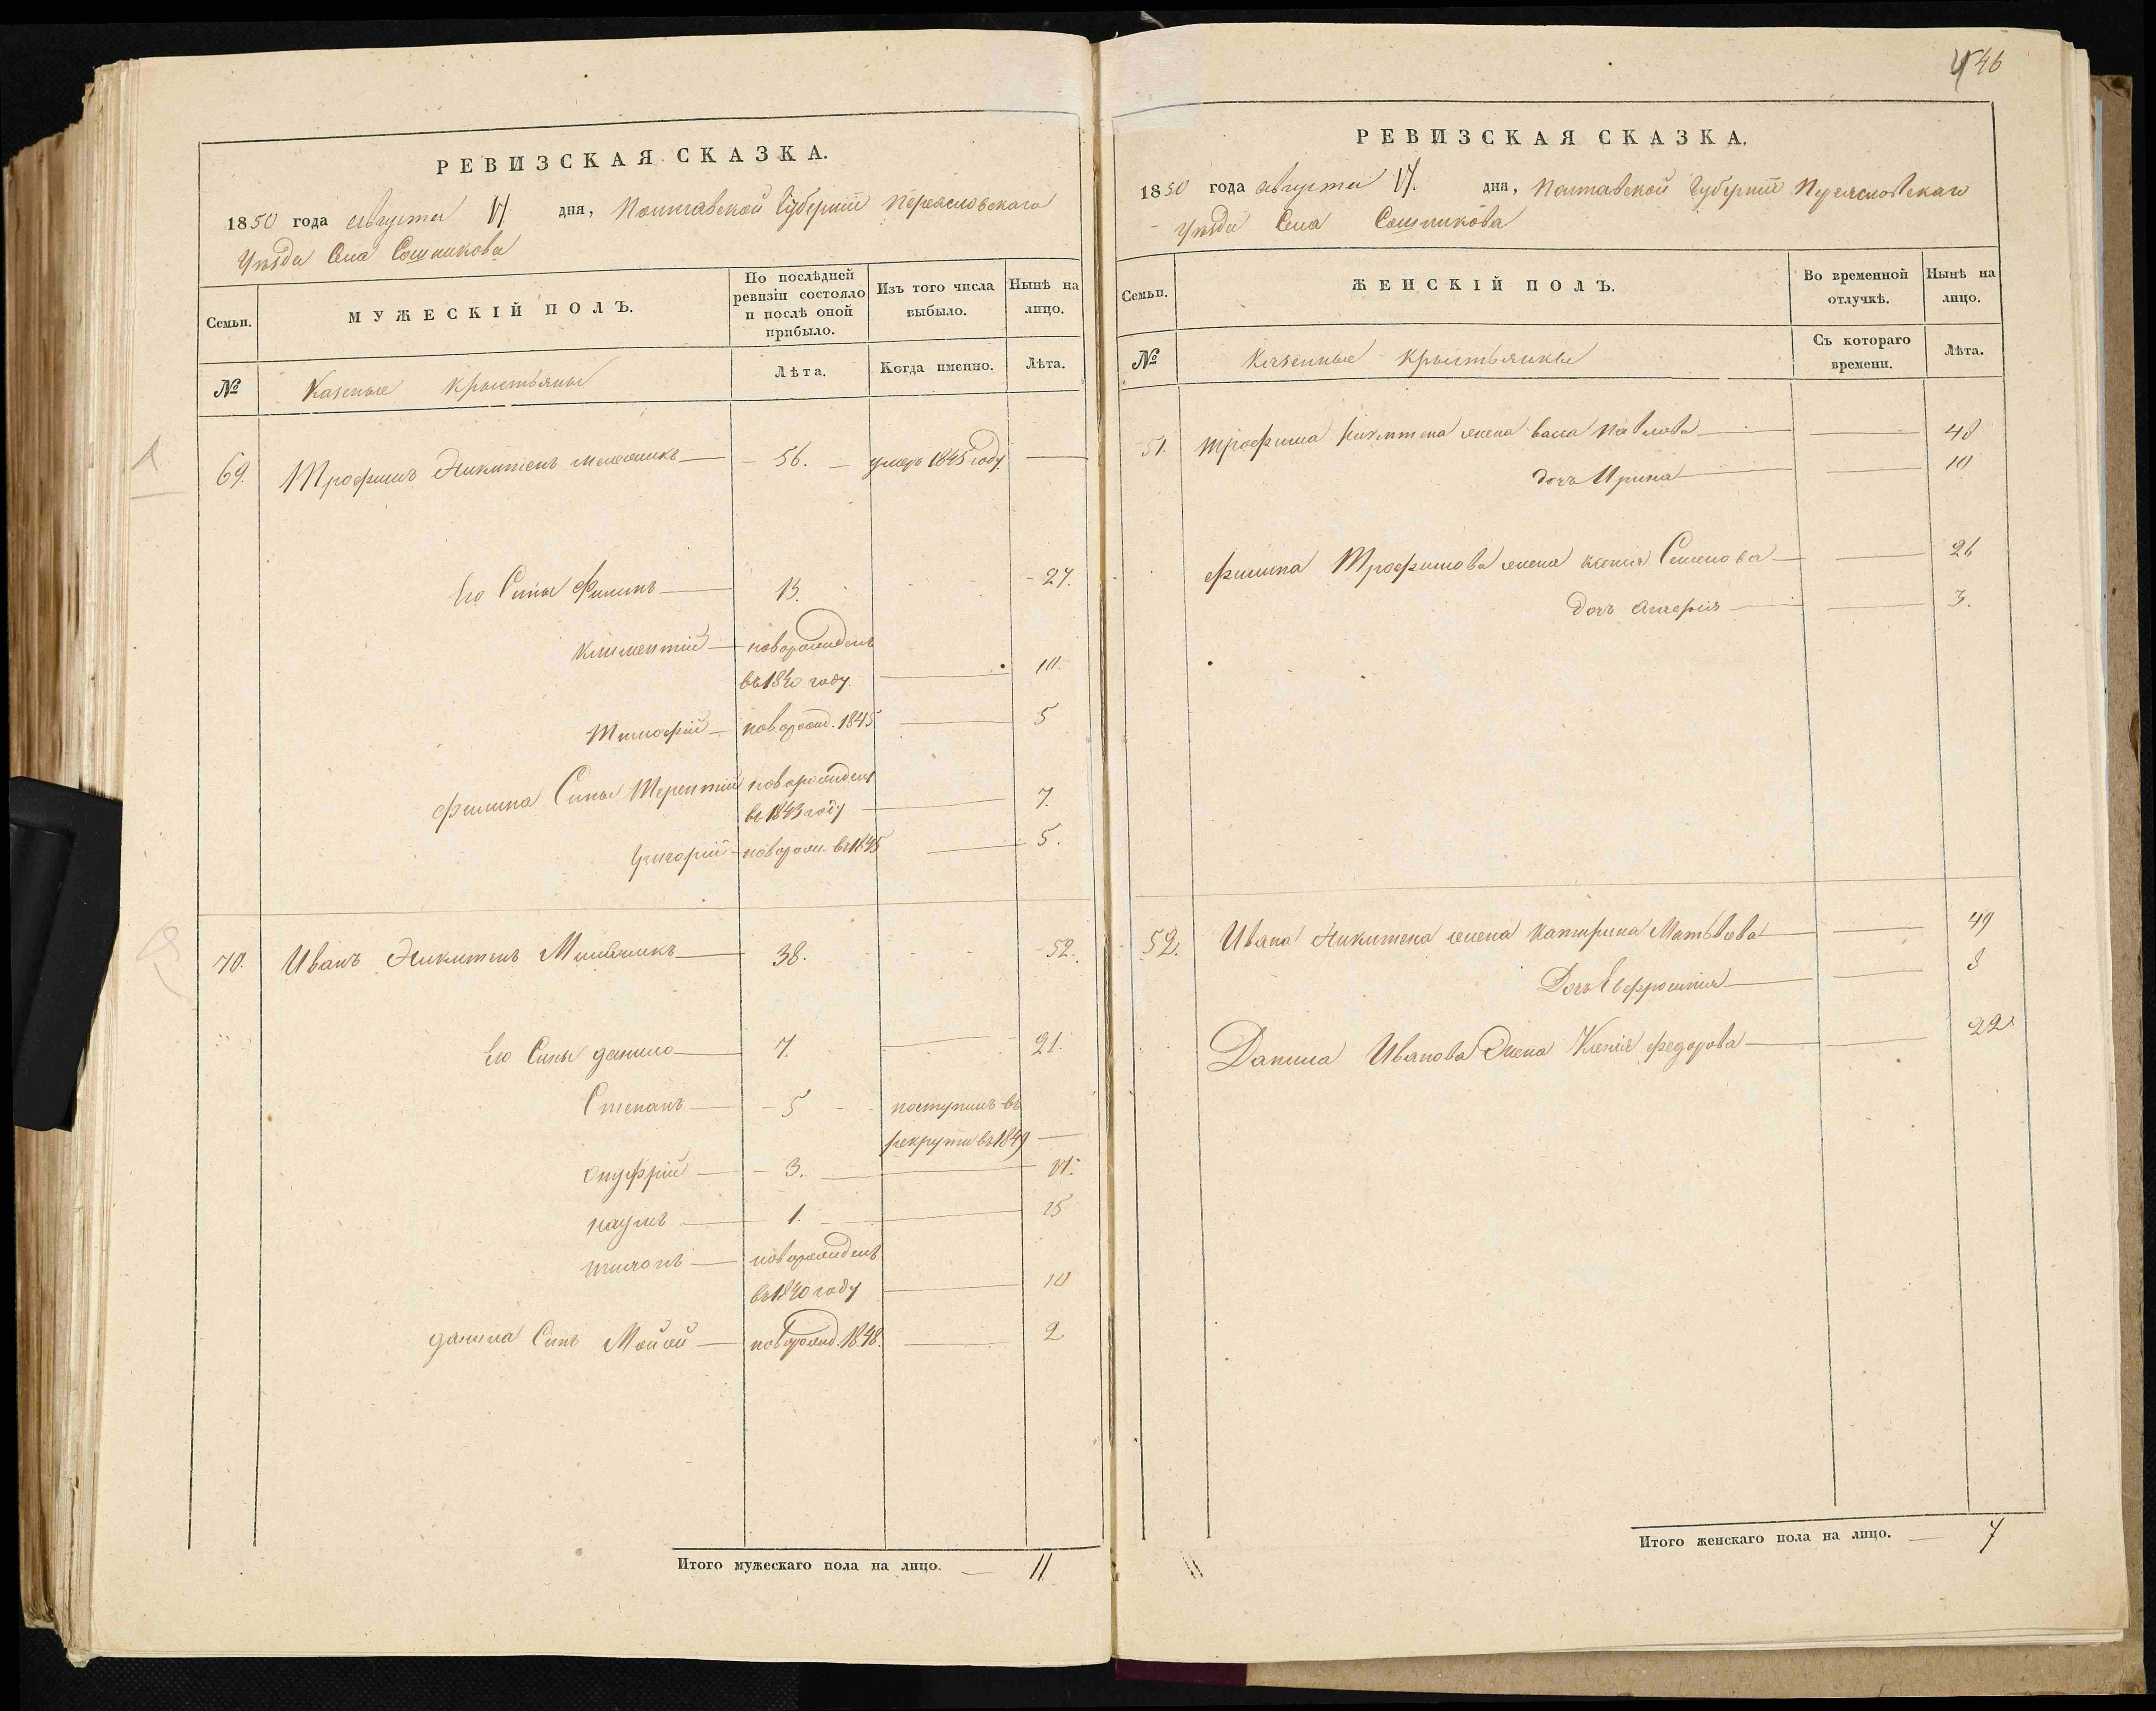 546
РЕВИЗСКАЯ СКАЗКА.
1850 года августа 17. дня, Полтавской Губерніи Переясловскаго
Уѣзда Села Сошникова
Семьи.
МУЖЕСКІЙ ПОЛЪ.
По послѣдней ревизіи состояло и послѣ оной прибыло.
Изъ того числа выбыло.
Нынѣ на лицо.
№
Казеные крыстьяны
Лѣта.
Когда именно.
Лѣта.
69. Трофимъ Никитенъ — 56. — умеръ 1845 году —
Его Сины Филипъ — 13. 27.
Климентій — новорожденъ
въ 1840 году. — 10.
Тимофій — новорожд. 1845 — 5
Филипа Сины Терентій новорожденъ
въ 1843 году — 7.
Григорій — новорож. въ 1845 — 5.
70. Иванъ Никитенъ — 38. 52.
Его Сины данило — 7. — 21.
Степанъ — 5 поступилъ въ
рекруты въ 1849 —
Онуфрій — 3. — 17.
наумъ — 1. — 15
новорожденъ
въ 1840 году — 10
данила Синъ Мойсій — новорожд. 1848. — 2
Итого мужескаго пола на лицо. — 11
РЕВИЗСКАЯ СКАЗКА.
1850 года августа 17. дня, Полтавской Губерніи Переясловскаго
Уѣзда Села Сошникова
Семьи.
ЖЕНСКІЙ ПОЛЪ.
Во временной отлучкѣ.
Нынѣ на лицо.
№
Казенные крыстьянкы
Съ котораго времени.
Лѣта.
51. Трофима Никитена жена васа Павлова — — 48
дочъ Ирина — — 10
Филипа Трофимова жена ксенія Семенова — — 26
Дочъ — — 3.
52. Ивана Никитена жена катирина Матвѣева — — 49
Дочъ Евфросинія — — 8
Данила Иванова Жена Ксеніе федорова — — 22
Итого женскаго пола на лицо. — 7